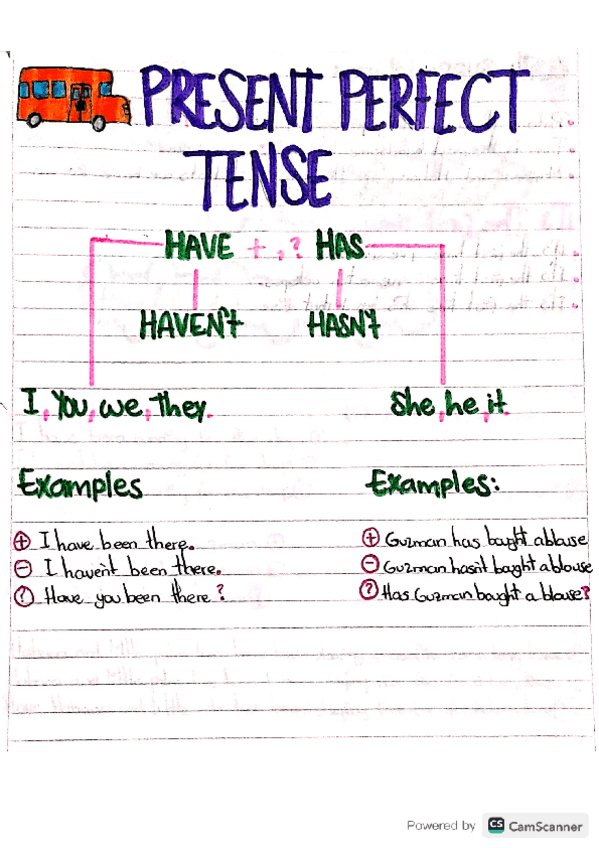 PRESENT PERFECT
TENSE
HAVE + , ? HAS
HAVEN'T HASN'T
I, You, we, they. She, he, it.
Examples Examples:
+ I have been there. + Guzman has bought a blouse
- I haven't been there. - Guzman hasn't bought a blouse
? Have you been there? ? Has Guzman bought a blouse?
Powered by CS CamScanner